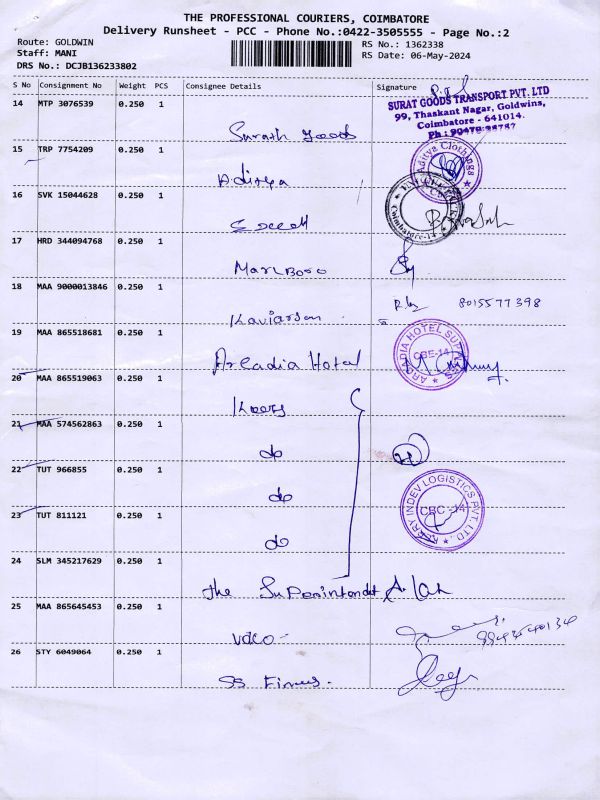 THE PROFESSIONAL COURIERS, COIMBATORE
Delivery Runsheet - PCC - Phone No.:0422-3505555 - Page No.:2
Route: GOLDWIN
Staff: MANI
DRS No.: DCJB136233802
RS No.: 1362338
RS Date: 06-May-2024
S No Consignment No Weight PCS Consignee Details Signature
14 MTP 3076539 0.250 1
SURAT GOODS TRANSPORT PVT. LTD
99, Thaskant Nagar, Goldwins,
Coimbatore - 641014.
Surath goods
15 TRP 7754209 0.250 1
Aditya Clothings
Aditya
16 SVK 15044628 0.250 1
Coimbatore-14
17 HRD 344094768 0.250 1
Marlboro
18 MAA 9000013846 0.250 1
8015577398
Kaviarson
19 MAA 865518681 0.250 1
ARCADIA HOTEL SUPPLIES
CBE-14
Arcadia Hotal
20 MAA 865519063 0.250 1
21 MAA 574562863 0.250 1
do
22 TUT 966855 0.250 1
INDEV LOGISTICS PVT. LTD.
CBC-14
do
23 TUT 811121 0.250 1
do
24 SLM 345217629 0.250 1
The
25 MAA 865645453 0.250 1
26 STY 6049064 0.250 1